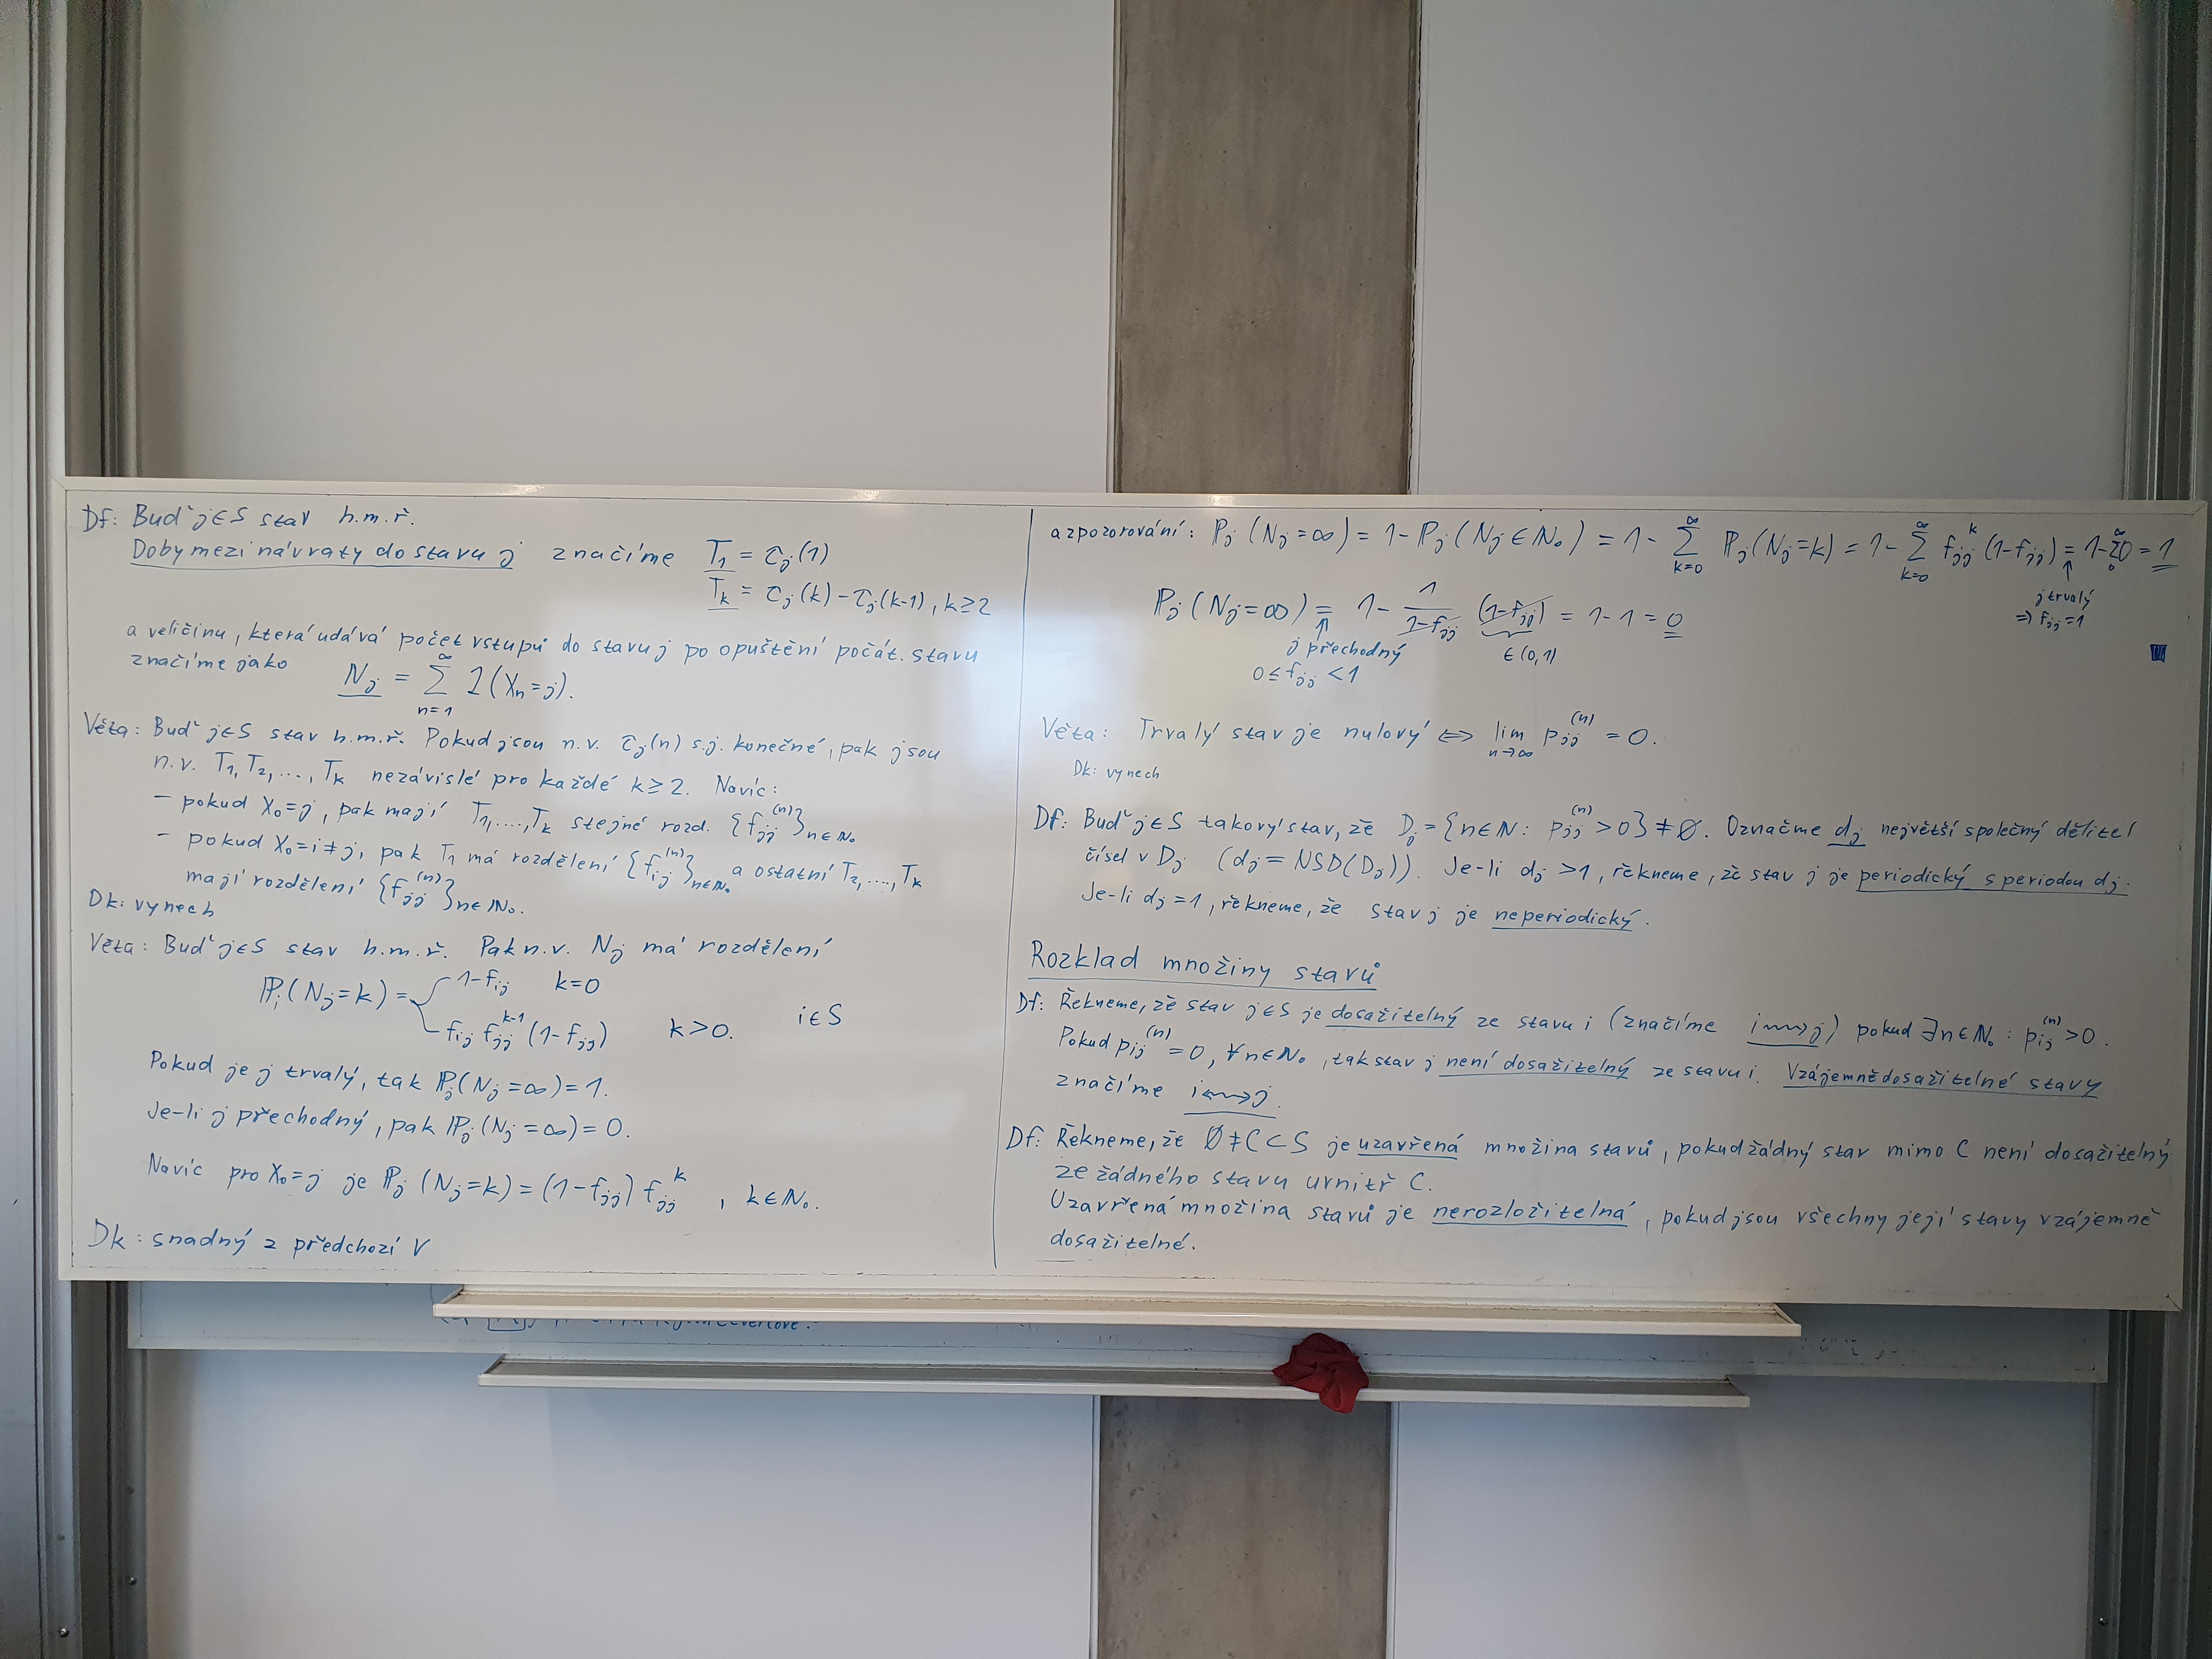 Df: Buď j∈S stav h.m.ř.
Doby mezi návraty do stavu j značíme T₁ = τ_j(1)
T_k = τ_j(k) − τ_j(k-1), k≥2
a veličinu, která udává počet vstupů do stavu j po opuštění počát. stavu
značíme jako N_j = ∑_{n=1}^{∞} 1(X_n = j).
Věta: Buď j∈S stav h.m.ř. Pokud jsou n.v. τ_j(n) s.j. konečné, pak jsou
n.v. T₁, T₂, ..., T_k nezávislé pro každé k≥2. Navíc:
– pokud X₀=j, pak mají T₁, ...., T_k stejné rozd. {f_jj^(n)}_{n∈ℕ₀}
– pokud X₀=i≠j, pak T₁ má rozdělení {f_ij^(n)}_{n∈ℕ₀} a ostatní T₂, ...., T_k
mají rozdělení {f_jj^(n)}_{n∈ℕ₀}.
Dk: vynech
Věta: Buď j∈S stav h.m.ř. Pak n.v. N_j má rozdělení
ℙ_i(N_j=k) = 1-f_ij k=0
f_ij f_jj^{k-1} (1-f_jj) k>0. i∈S
Pokud je j trvalý, tak ℙ_j(N_j=∞)=1.
Je-li j přechodný, pak ℙ_j(N_j=∞)=0.
Navíc pro X₀=j je ℙ_j(N_j=k) = (1-f_jj) f_jj^k , k∈ℕ₀.
Dk: snadný z předchozí V
a z pozorování: ℙ_j(N_j=∞) = 1-ℙ_j(N_j∈ℕ₀) = 1- ∑_{k=0}^{∞} ℙ_j(N_j=k) = 1- ∑_{k=0}^{∞} f_jj^k (1-f_jj) = 1-∑_0^∞ 0 = 1
↑
j trvalý
⇒ f_jj=1
ℙ_j(N_j=∞) = 1- 1/(1-f_jj) (1-f_jj) = 1-1 = 0
↑
j přechodný ∈(0,1)
0≤f_jj<1
Věta: Trvalý stav je nulový ⇔ lim_{n→∞} p_jj^(n) = 0.
Dk: vynech
Df: Buď j∈S takový stav, že D_j = {n∈ℕ: p_jj^(n) >0} ≠ ∅. Označme d_j největší společný dělitel
čísel v D_j (d_j = NSD(D_j)). Je-li d_j >1, řekneme, že stav j je periodický s periodou d_j.
Je-li d_j=1, řekneme, že stav j je neperiodický.
Rozklad množiny stavů
Df: Řekneme, že stav j∈S je dosažitelný ze stavu i (značíme i⇝j) pokud ∃n∈ℕ₀: p_ij^(n) >0.
Pokud p_ij^(n) =0, ∀n∈ℕ₀, tak stav j není dosažitelný ze stavu i. Vzájemně dosažitelné stavy
značíme i↭j.
Df: Řekneme, že ∅≠C⊂S je uzavřená množina stavů, pokud žádný stav mimo C není dosažitelný
ze žádného stavu uvnitř C.
Uzavřená množina stavů je nerozložitelná, pokud jsou všechny její stavy vzájemně
dosažitelné.